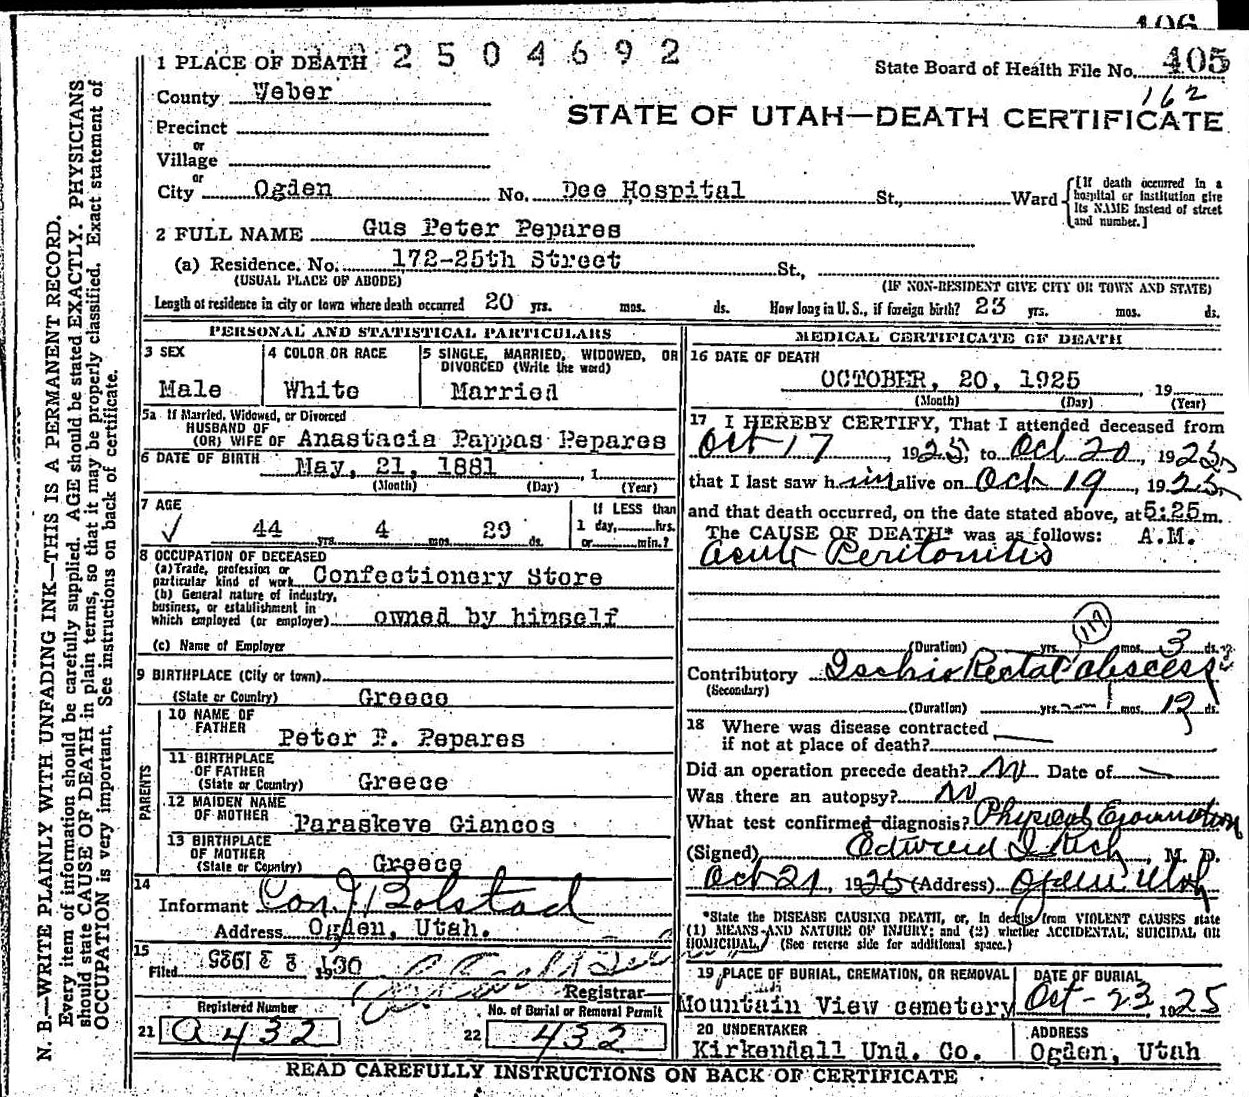 106
1 PLACE OF DEATH 2504692
State Board of Health File No. 405
162
County Weber
STATE OF UTAH—DEATH CERTIFICATE
Precinct
or
Village
or
City Ogden No. Dee Hospital St., Ward
[If death occurred in a hospital or institution give its NAME instead of street and number.]
2 FULL NAME Gus Peter Pepares
(a) Residence. No. 172-25th Street St.,
(USUAL PLACE OF ABODE) (IF NON-RESIDENT GIVE CITY OR TOWN AND STATE)
Length of residence in city or town where death occurred 20 yrs. mos. ds. How long in U. S., if foreign birth? 23 yrs. mos. ds.
PERSONAL AND STATISTICAL PARTICULARS
3 SEX
Male
4 COLOR OR RACE
White
5 SINGLE, MARRIED, WIDOWED, OR
DIVORCED (Write the word)
Married
5a If Married, Widowed, or Divorced
HUSBAND OF
(OR) WIFE OF Anastacia Pappas Pepares
6 DATE OF BIRTH May, 21, 1881 , 1
(Month) (Day) (Year)
7 AGE
44 yrs. 4 mos. 29 ds.
If LESS than
1 day, hrs.
or min.?
8 OCCUPATION OF DECEASED
(a) Trade, profession or
particular kind of work Confectionery Store
(b) General nature of industry,
business, or establishment in
which employed (or employer) owned by himself
(c) Name of Employer
9 BIRTHPLACE (City or town)
(State or Country) Greece
PARENTS
10 NAME OF
FATHER Peter P. Pepares
11 BIRTHPLACE
OF FATHER
(State or Country) Greece
12 MAIDEN NAME
OF MOTHER Paraskeve Giancos
13 BIRTHPLACE
OF MOTHER
(State or Country) Greece
14
Informant Con J Bolstad
Address Ogden, Utah.
15
Filed
Registrar
Registered Number
21 a 432
No. of Burial or Removal Permit
22 432
MEDICAL CERTIFICATE OF DEATH
16 DATE OF DEATH
OCTOBER, 20, 1925 19
(Month) (Day) (Year)
17 I HEREBY CERTIFY, That I attended deceased from
Oct 17, 1925, to Oct 20, 1925,
that I last saw him alive on Oct 19, 1925,
and that death occurred, on the date stated above, at 5:25 m.
The CAUSE OF DEATH* was as follows: A.M.
Acute Peritonitis
119
(Duration) yrs. mos. 3 ds.
Contributory Ischio Rectal abscess
(Secondary)
(Duration) yrs. mos. 12 ds.
18 Where was disease contracted
if not at place of death?
Did an operation precede death? No Date of
Was there an autopsy? No
What test confirmed diagnosis? Physical Examination
(Signed) Edward I Rich, M. D.
Oct 21, 1925 (Address) Ogden Utah
*State the DISEASE CAUSING DEATH, or, in deaths from VIOLENT CAUSES state
(1) MEANS AND NATURE OF INJURY; and (2) whether ACCIDENTAL, SUICIDAL OR
HOMICIDAL. (See reverse side for additional space.)
19 PLACE OF BURIAL, CREMATION, OR REMOVAL
Mountain View cemetery
DATE OF BURIAL
Oct-23 1925
20 UNDERTAKER
Kirkendall Und. Co.
ADDRESS
Ogden, Utah
READ CAREFULLY INSTRUCTIONS ON BACK OF CERTIFICATE
N. B.—WRITE PLAINLY WITH UNFADING INK—THIS IS A PERMANENT RECORD.
Every item of information should be carefully supplied. AGE should be stated EXACTLY. PHYSICIANS
should state CAUSE OF DEATH in plain terms, so that it may be properly classified. Exact statement of
OCCUPATION is very important. See instructions on back of certificate.